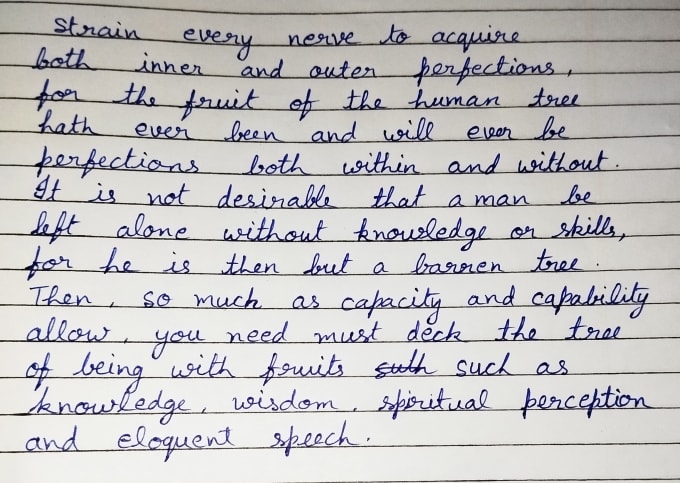 Strain every nerve to acquire
both inner and outer perfections,
for the fruit of the human tree
hath ever been and will ever be
perfections both within and without.
It is not desirable that a man be
left alone without knowledge or skills,
for he is then but a barren tree.
Then, so much as capacity and capability
allow, you need must deck the tree
of being with fruits such as
knowledge, wisdom, spiritual perception
and eloquent speech.